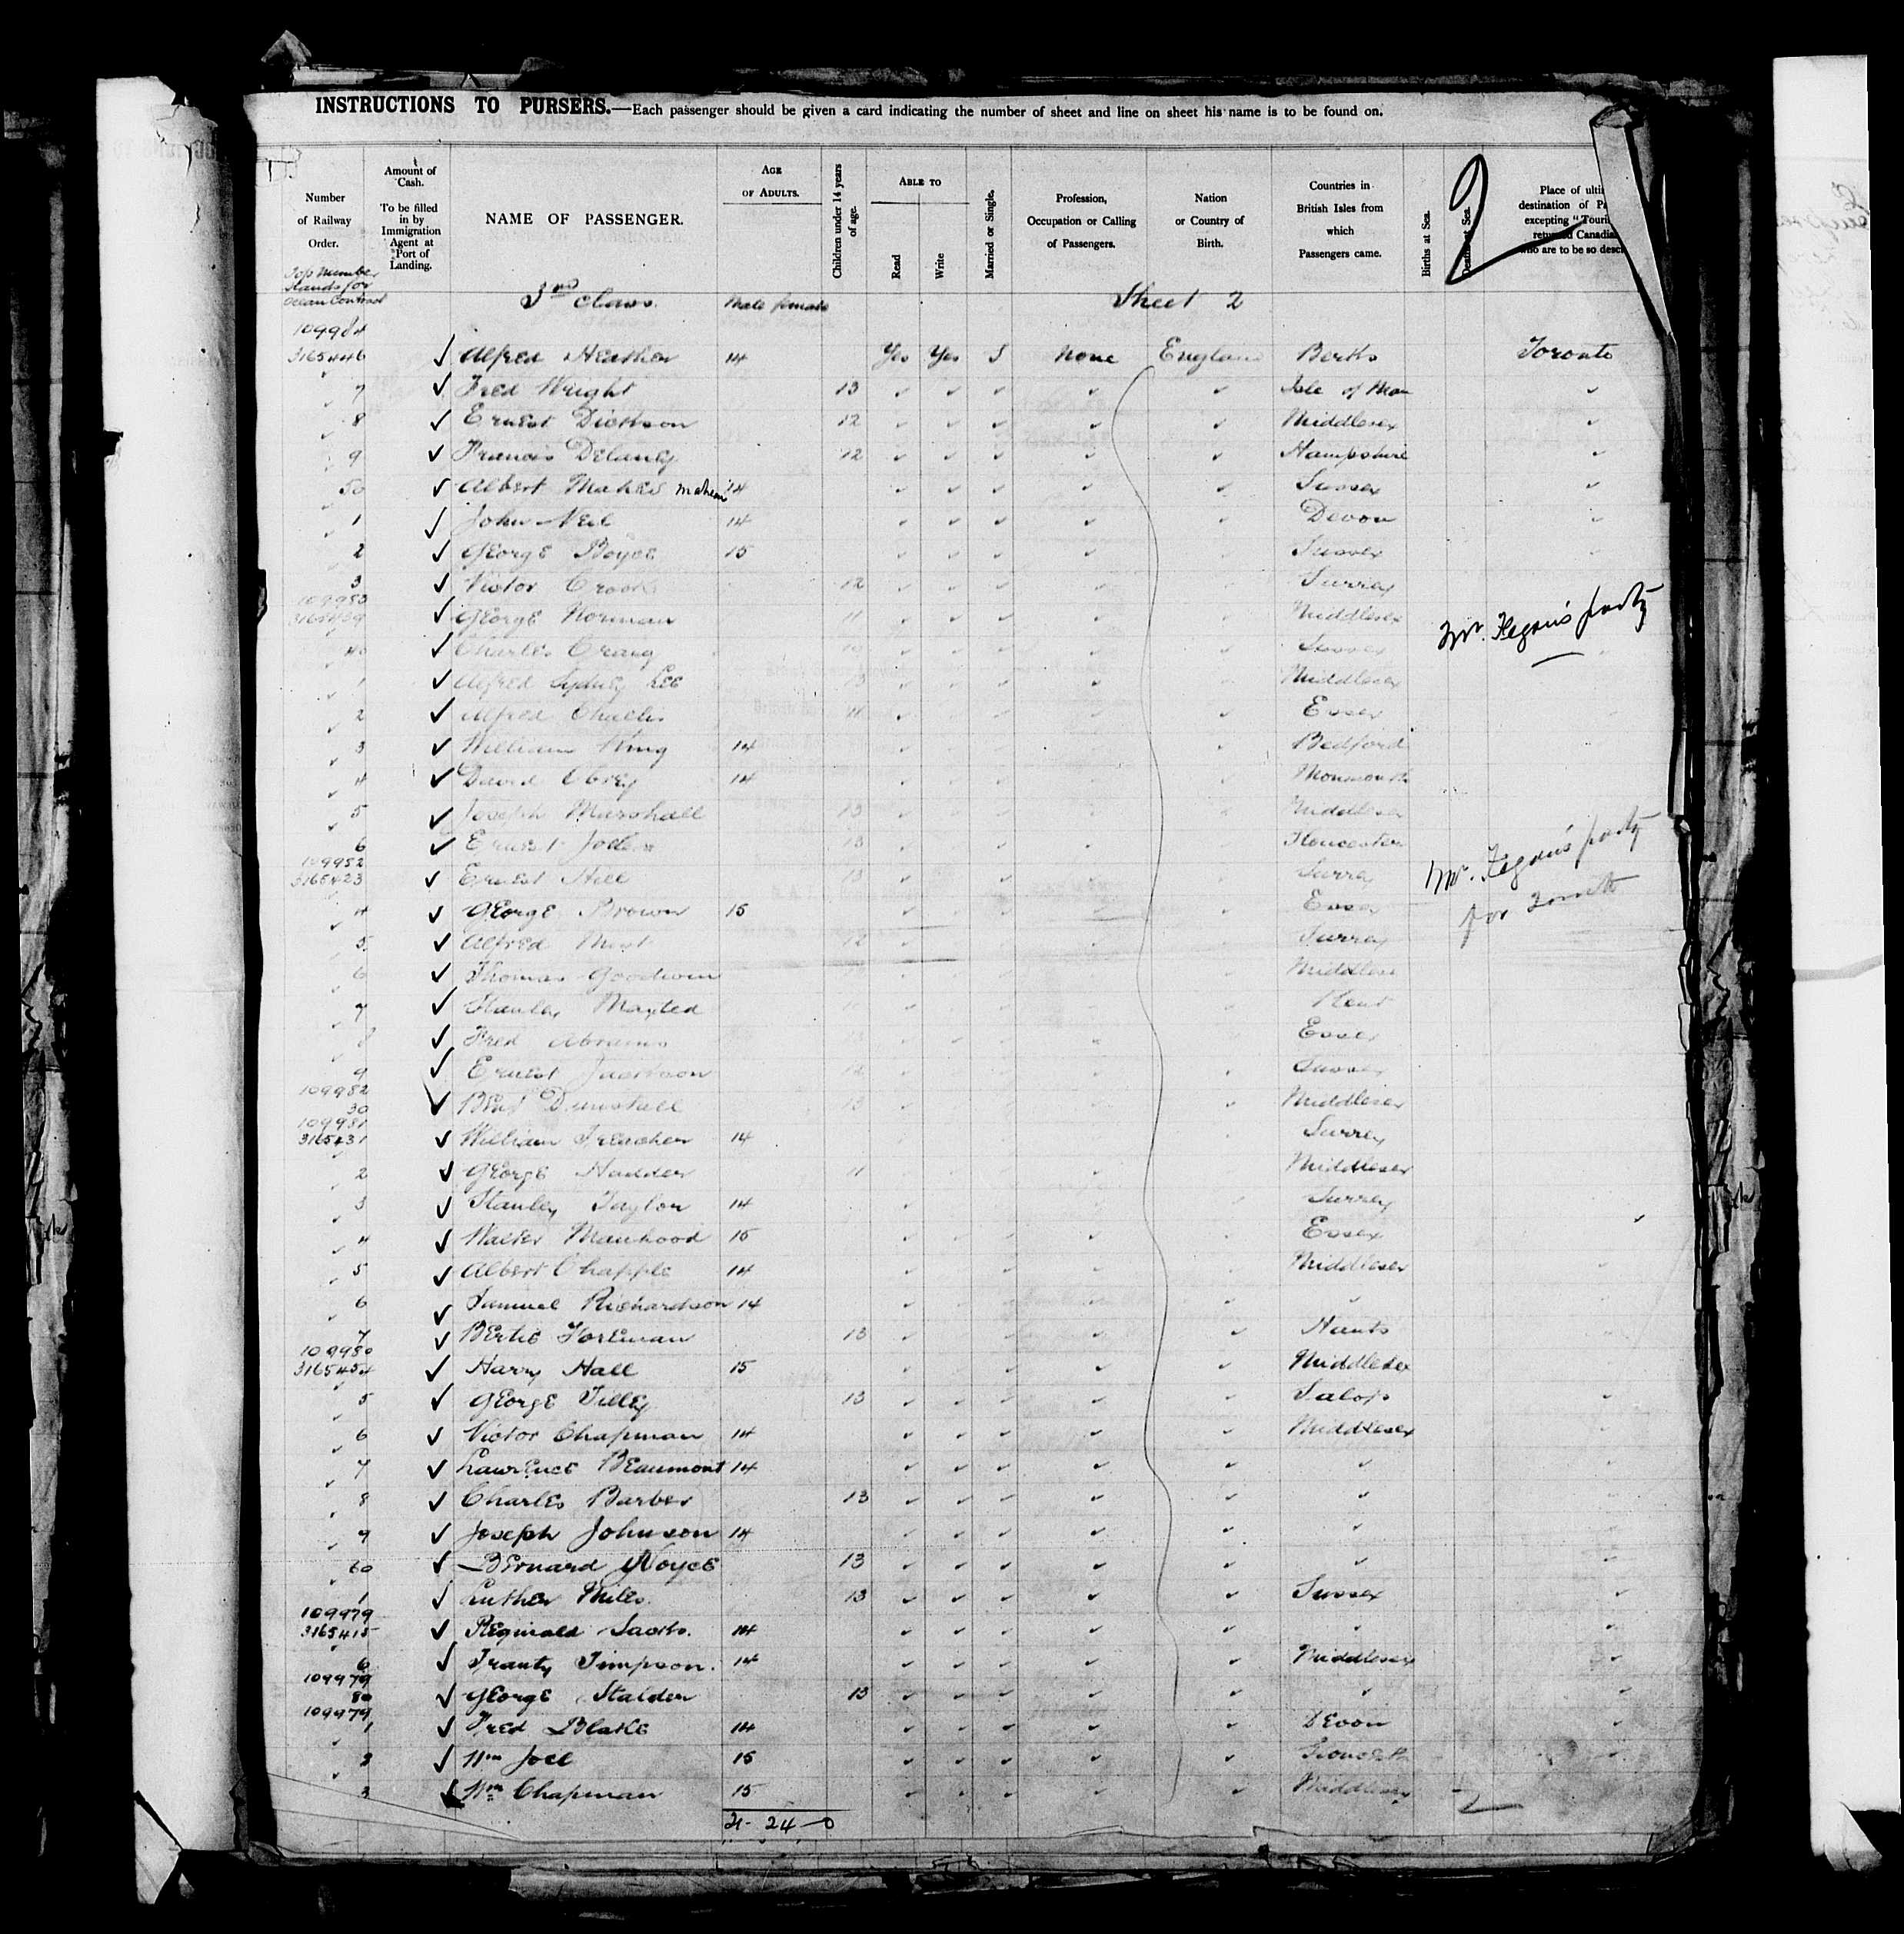 INSTRUCTIONS TO PURSERS.—Each passenger should be given a card indicating the number of sheet and line on sheet his name is to be found on.
Number of Railway Order. Amount of Cash. To be filled in by Immigration Agent at Port of Landing. NAME OF PASSENGER. AGE OF ADULTS. Children under 14 years of age. ABLE TO Read Write Married or Single. Profession, Occupation or Calling of Passengers. Nation or Country of Birth. Countries in British Isles from which Passengers came. Births at Sea. Deaths at Sea. Place of destination of excepting who are to be so 2
Top Number Stands for Ocean Contract 3rd Class. Male female Sheet 2
109984
3165446 ✓ Alfred Heather 14 Yes Yes S None England Berks Toronto
7 ✓ Fred Wright 13 Isle of Man
8 ✓ Ernest Dickson 12 Middlesex
9 ✓ Francis Delaney 12 Hampshire
50 ✓ Albert Maher 14 Sussex
1 ✓ John Neil 14 Devon
2 ✓ George Boyce 15 Sussex
3 ✓ Victor Crook 12 Surrey
109983
3165439 ✓ George Norman 11 Middlesex Mr. Fegan's party
40 ✓ Charles Craig Sussex
1 ✓ Alfred Sydney Lee 13 Middlesex
2 ✓ Alfred Challis 11 Essex
3 ✓ William King 14 Bedford
4 ✓ David Obrey 14 Monmouth
5 ✓ Joseph Marshall 13 Middlesex
6 ✓ Ernest 13 Gloucester
109982
3165423 ✓ Ernest Hill 13 Surrey Mr. Fegan's party
4 ✓ George Brown 15 Essex for Toronto
5 ✓ Alfred 12 Surrey
6 ✓ Thomas Goodwin Middlesex
7 ✓ Stanley Maxted Kent
8 ✓ Fred Abrams Essex
9 ✓ Ernest Jackson 12 Sussex
109982
30 ✓ Benj Dunstall 13 Middlesex
109981
3165431 ✓ William Treacher 14 Surrey
2 ✓ George Hadden 11 Middlesex
3 ✓ Stanley Taylor 14 Surrey
4 ✓ Walter Manhood 15 Essex
5 ✓ Albert Chapple 14 Middlesex
6 ✓ Samuel Richardson 14
7 ✓ Bertie Foreman 13 Hants
109980
3165454 ✓ Harry Hall 15 Middlesex
5 ✓ George Tilley 13 Salop
6 ✓ Victor Chapman 14 Middlesex
7 ✓ Lawrence Beaumont 14
8 ✓ Charles Barber 13
9 ✓ Joseph Johnson 14
60 ✓ Bernard Noyce 13
1 ✓ Luther Miles 13 Sussex
109979
3165415 ✓ Reginald Jacobs. 14
6 ✓ Frank Simpson. 14 Middlesex
109979
80 ✓ George Stalder 13
109979
1 ✓ Fred Blake 14 Devon
2 ✓ Wm Joel 15
3 ✓ Wm Chapman 15 Middlesex 2
21- 24-0